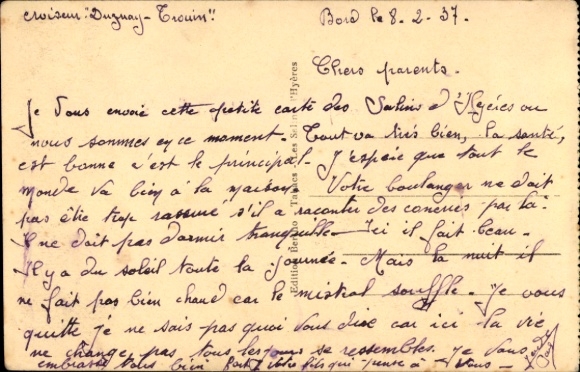 croiseur "Duguay-Trouin".
Bord le 8-2-37.
Chers parents.
Je vous envoie cette petite carte des Salins d'Hyéres ou
nous sommes en ce moment. Tout va très bien, la santé,
est bonne c'est le principal. J'espére que tout le
monde va bien à la maison. Votre boulanger ne doit
pas être trop rassuré s'il a raconter des conneries par là.
Il ne doit pas dormir tranquille. Ici il fait beau.
Il y a du soleil toute la journée. Mais la nuit il
ne fait pas bien chaud car le mistral souffle. Je vous
quitte je ne sais pas quoi vous dire car ici la vie
ne change pas tous les jours se ressembles. Je vous
embrasse tous bien fort votre fils qui pense à vous
Edition Tabacs Les Salins "Hyères